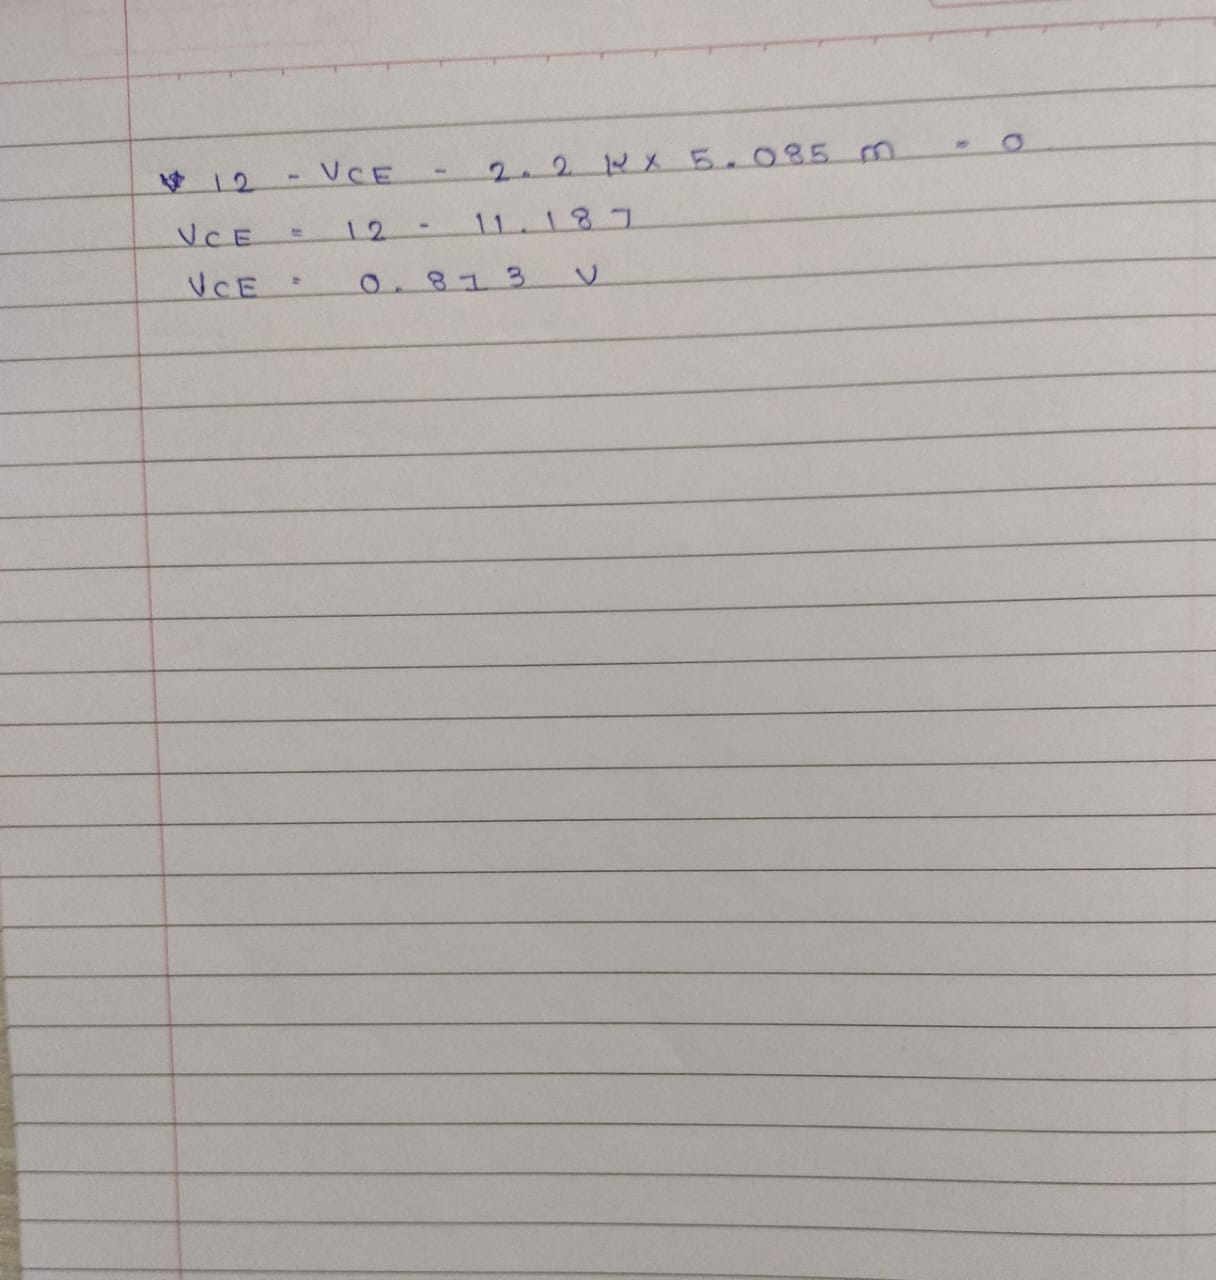 12 - VCE - 2.2 K x 5.085 m = 0
VCE = 12 - 11.187
VCE = 0.813 V